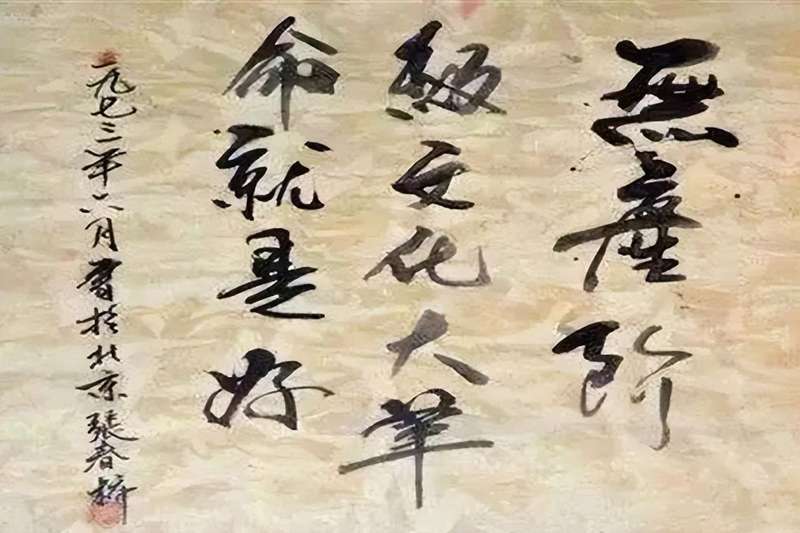 無產阶
級文化大革
命就是好
一九七三年六月書於北京張春橋